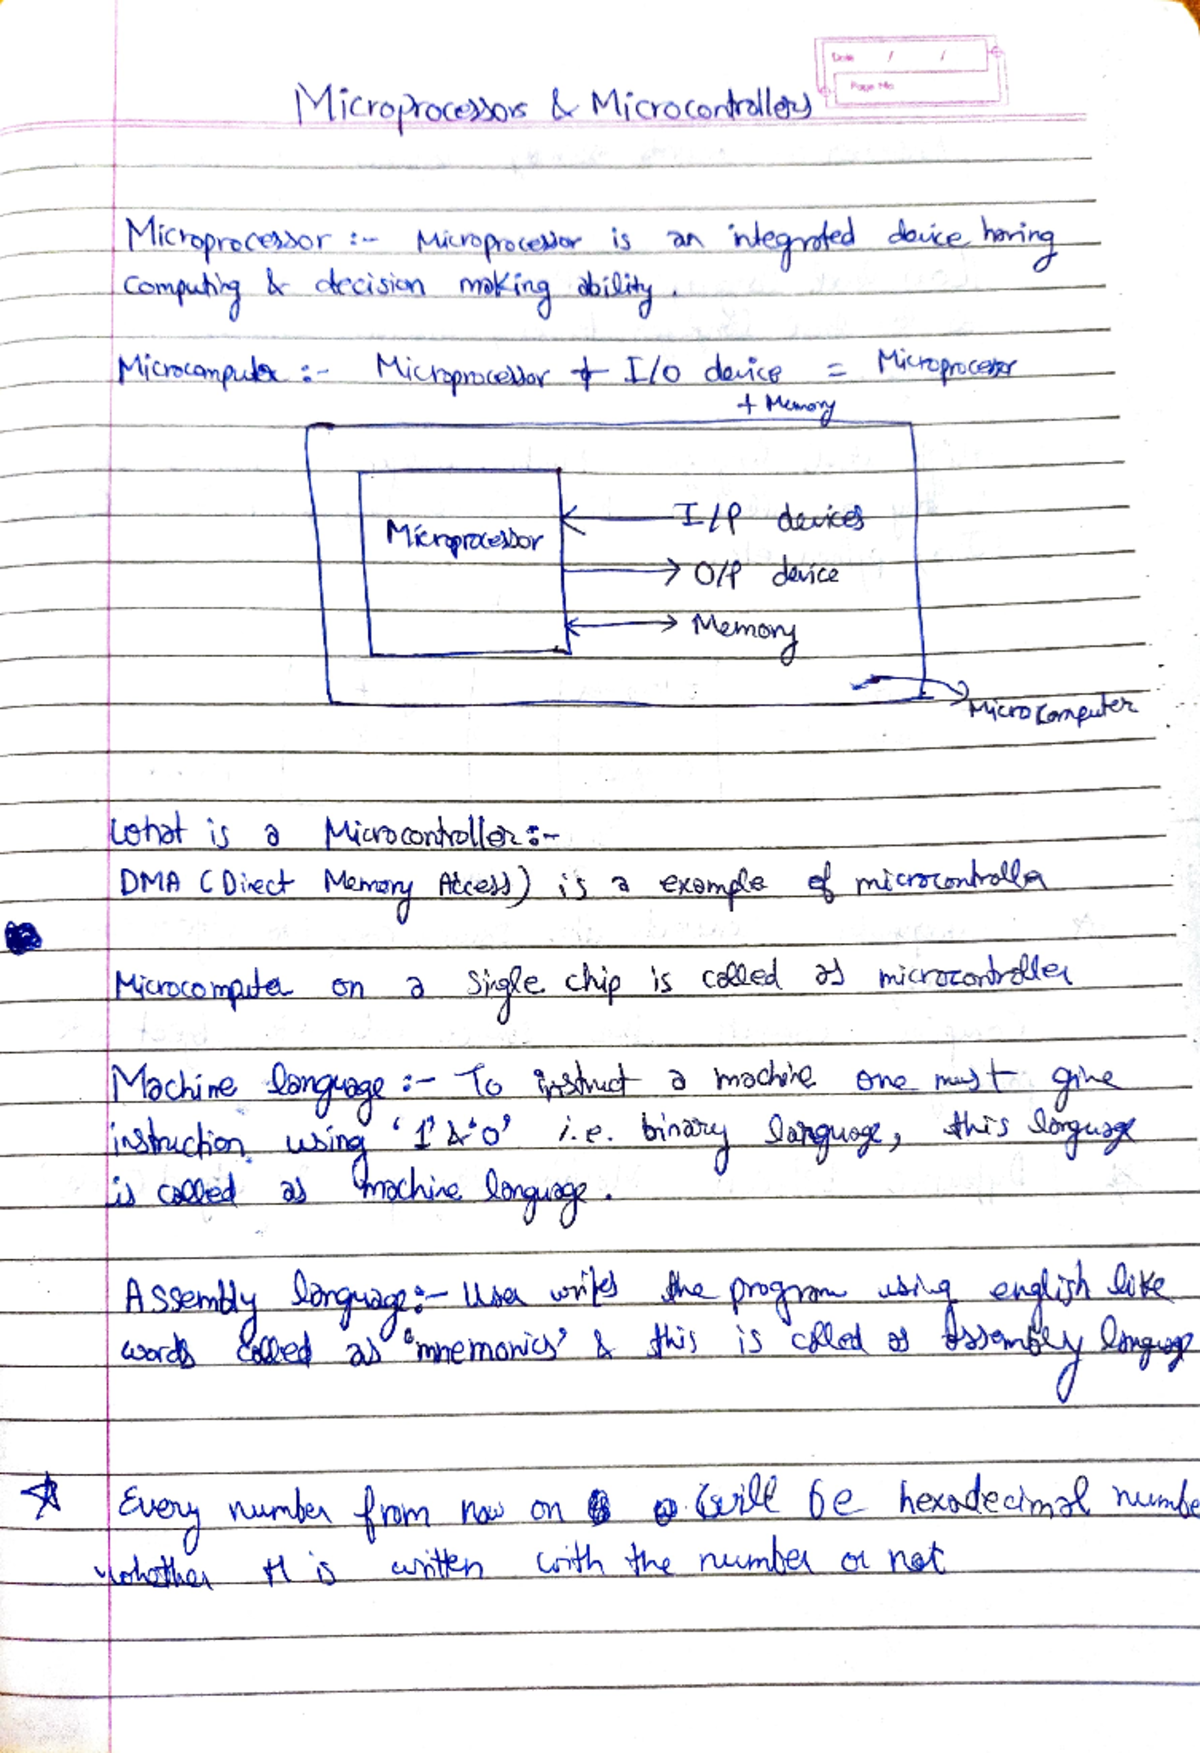 Date / /
Page No
Microprocessors & Microcontrollers
Microprocessor :- Microprocessor is an integrated device having
computing & decision making ability.
Microcomputer :- Microprocessor + I/O device = Microprocessor
+ Memory
Microprocessor
I/P devices
O/P device
Memory
Microcomputer
What is a Microcontroller :-
DMA (Direct Memory Access) is a example of microcontroller
Microcomputer on a single chip is called as microcontroller
Machine language :- To instruct a machine one must give
instruction using '1' & '0' i.e. binary language, this language
is called as machine language.
Assembly language :- User writes the program using english like
words called as 'mnemonics' & this is called as assembly language
Every number from now on will be hexadecimal numbe
whether H is written with the number or not